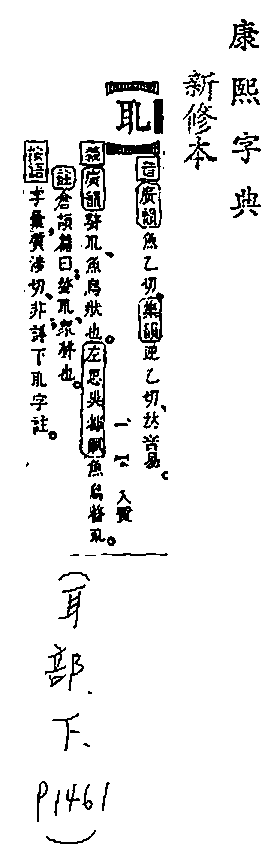 康熙字典
新修本
耴
音 廣韻 魚乙切。集韻 逆乙切,𠀤音易。
入質
義 廣韻 聱耴,魚鳥狀也。左思吳都賦 魚鳥聱耴。
註 倉頡篇曰:聱耴,眾聲也。
按語 字彙質涉切,非。詳下耴字註。
(耳
部、
下、
P1461
)